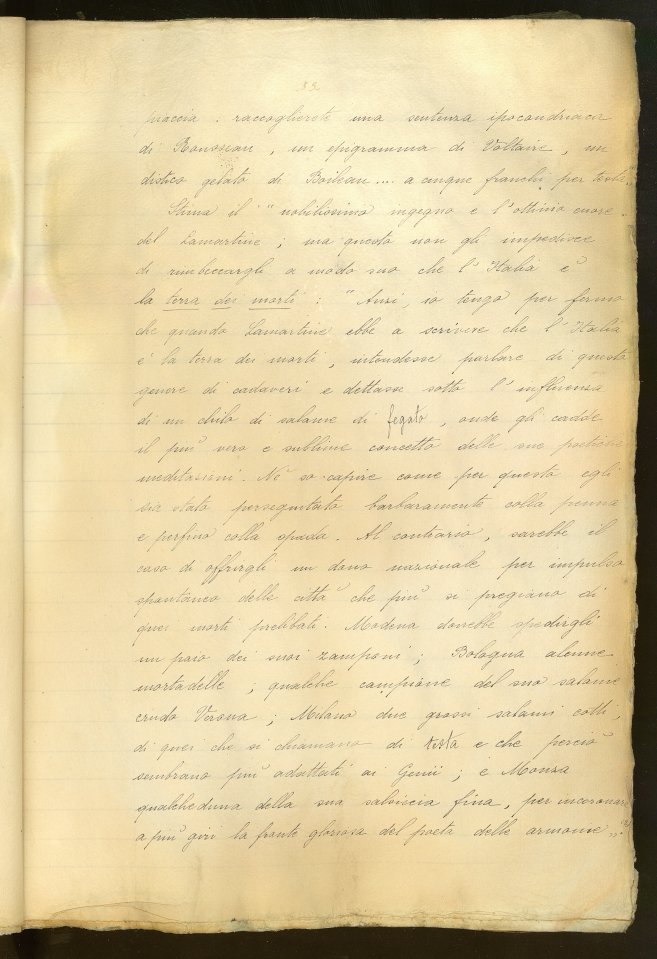 55
piaccia : raccoglierete una sentenza ipocondriaca
di Rousseau, un epigramma di Voltaire, un
distico gelato di Boileau.... a cinque franchi per testa".
Stima il "nobilissimo ingegno e l'ottimo cuore
del Lamartine; ma questo non gli impedisce
di rimbeccargli a modo suo che l'Italia è
la terra dei morti : "Anzi, io tengo per fermo
che quando Lamartine ebbe a scrivere che l'Italia
è la terra dei morti, intendesse parlare di questo
genere di cadaveri e dettasse sotto l'influenza
di un chilo di salame di fegato, onde gli cadde
il più vero e sublime concetto delle sue poetiche
meditazioni. Nè so capire come per questo egli
sia stato perseguitato barbaramente colla penna
e perfino colla spada. Al contrario, sarebbe il
caso di offrirgli un dono nazionale per impulso
spontaneo delle città che più si pregiano di
quei morti prelibati. Modena dovrebbe spedirgli
un paio dei suoi zamponi; Bologna alcune
mortadelle; qualche campione del suo salame
crudo Verona; Milano due grossi salami cotti,
di quei che si chiamano di testa e che perciò
sembrano più adattati ai Genii; e Monza
qualcheduna della sua salsiccia fina, per incoronare
a più giri la fronte gloriosa del poeta delle armonie".